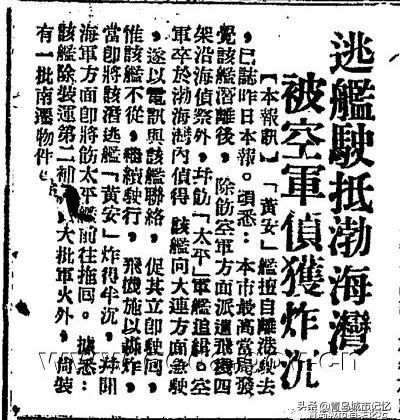 逃艦駛抵渤海灣
被空軍偵獲炸沉
【本報訊】「黃安」艦擅自離港駛去
，已誌昨日本報。頃悉：本市最高當局發
覺該艦潛離後，除飭空軍方面派遣飛機四
架沿海偵察外，幷飭「太平」軍艦追緝。空
軍卒於渤海灣內偵得該艦向大連方面急駛
，遂以電訊與該艦聯絡，促其立即駛回，
惟該艦不從，繼續駛行，飛機施以轟炸，
當即將該潛逃艦「黃安」炸得半沉，幷聞
海軍方面即將飭太平艦前往拖回。據悉：
該艦除裝運第二補大批軍火外，尚裝
有一批南運物件。
头条 @青岛城市记忆